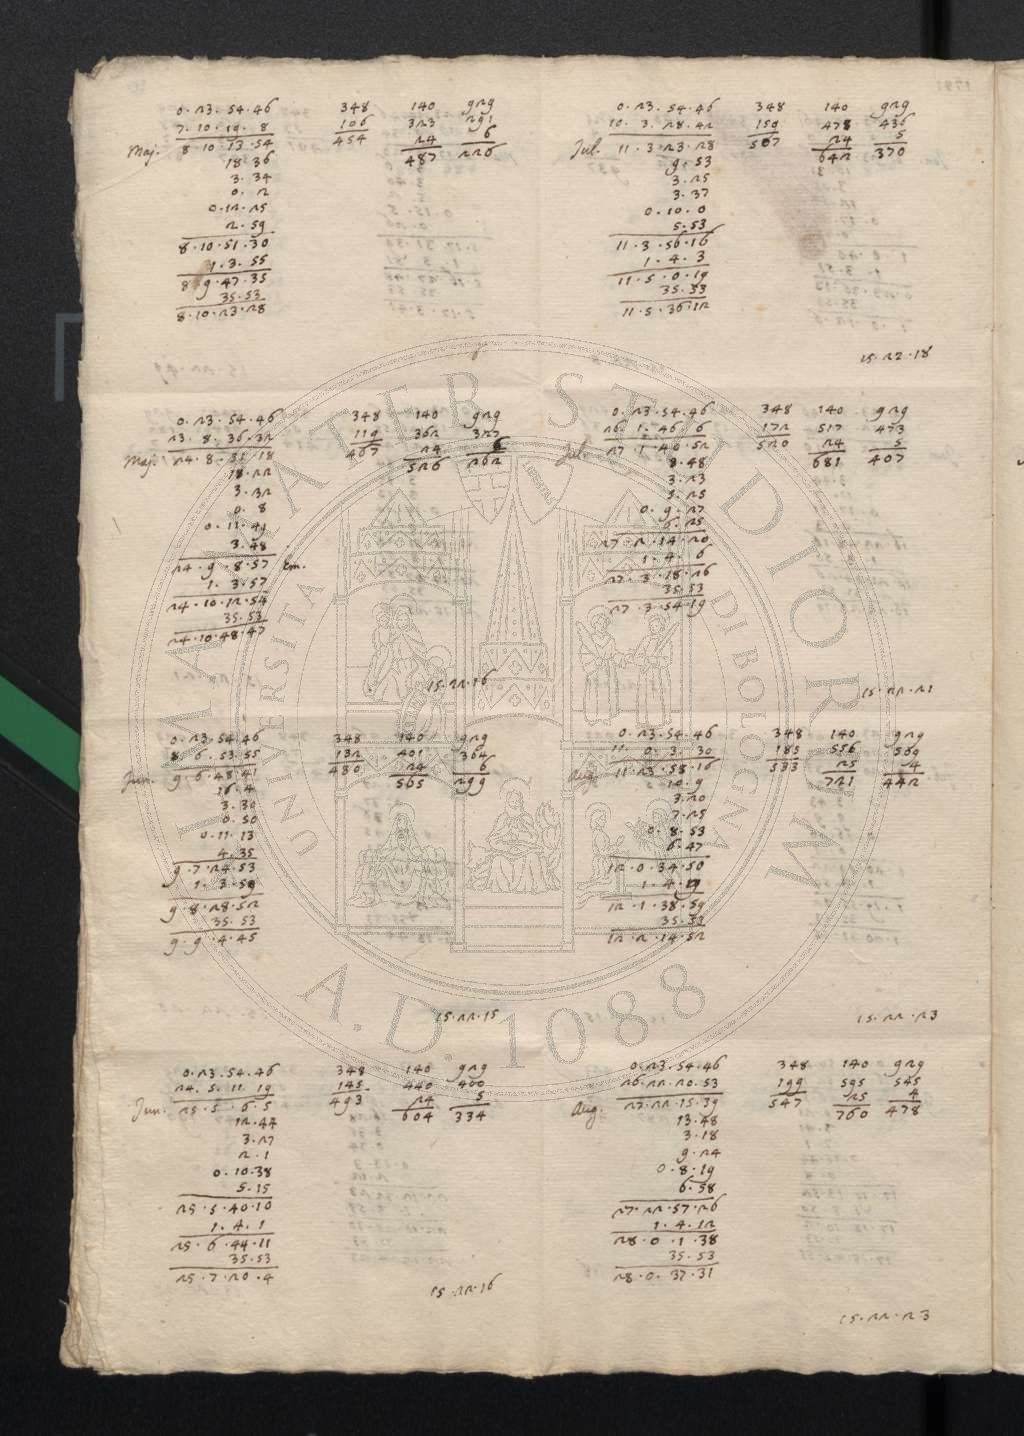 0. 23. 54. 46 348 140 929
7. 10. 19. 8 106 323 291
Maj. 8. 10. 13. 54 454 24 6
487 226
18. 36
3. 34
0. 2
0. 12. 25
2. 59
8. 10. 51. 30
1. 3. 55
8. 9. 47. 35
35. 53
8. 10. 23. 28
0. 23. 54. 46 348 140 929
10. 3. 28. 42 159 478 436
Jul. 11. 3. 23. 28 507 24 5
642 370
9. 53
3. 25
3. 37
0. 10. 0
5. 53
11. 3. 56. 16
1. 4. 3
11. 5. 0. 19
35. 53
11. 5. 36. 12
15. 22. 18
0. 23. 54. 46 348 140 929
23. 8. 36. 32 119 362 327
Maj. 24. 8. 31. 18 467 24 6
526 262
18. 22
3. 32
0. 8
0. 11. 41
3. 48
24. 9. 8. 57 Em.
1. 3. 57
24. 10. 12. 54
35. 53
24. 10. 48. 47
15. 22. 16
0. 23. 54. 46 348 140 929
26. 1. 46. 6 172 517 473
Jul. 27. 1. 40. 52 520 24 5
681 407
8. 48
3. 23
5. 25
0. 9. 27
6. 25
27. 2. 14. 20
1. 4. 6
27. 3. 18. 26
35. 53
27. 3. 54. 19
15. 22. 21
0. 23. 54. 46 348 140 929
8. 6. 53. 55 132 401 364
Jun. 9. 6. 48. 41 480 24 6
565 299
16. 4
3. 30
0. 50
0. 11. 13
4. 35
9. 7. 24. 53
1. 3. 59
9. 8. 28. 52
35. 53
9. 9. 4. 45
15. 22. 15
0. 23. 54. 46 348 140 929
11. 0. 3. 30 185 556 509
Aug. 11. 23. 58. 16 533 25 4
721 442
10. 9
3. 20
7. 25
0. 8. 53
6. 47
12. 0. 34. 50
1. 4. 9
12. 1. 38. 59
35. 53
12. 2. 14. 52
15. 22. 23
0. 23. 54. 46 348 140 929
24. 5. 11. 19 145 440 400
Jun. 25. 5. 6. 5 493 24 5
604 334
12. 44
3. 27
2. 1
0. 10. 38
5. 15
25. 5. 40. 10
1. 4. 1
25. 6. 44. 11
35. 53
25. 7. 20. 4
15. 22. 16
0. 23. 54. 46 348 140 929
26. 22. 20. 53 199 595 545
Aug. 27. 22. 15. 39 547 25 4
760 478
13. 48
3. 18
9. 24
0. 8. 19
6. 58
27. 22. 57. 26
1. 4. 12
28. 0. 1. 38
35. 53
28. 0. 37. 31
15. 22. 23
ALMA MATER STUDIORUM
UNIVERSITA DI BOLOGNA
A.D. 1088